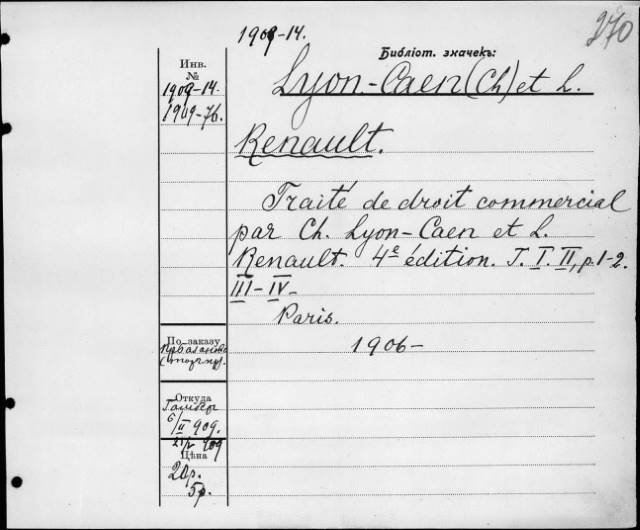 270
1909-14.
Библіот. значекъ:
Инв.
№
1909-14.
1909-76.
Lyon-Caen (Ch) et L.
Renault.
Traité de droit commercial
par Ch. Lyon-Caen et L.
Renault. 4e édition. T. I. II, p. 1-2.
III-IV-
Paris.
1906-
По заказу
Откуда
6/II 909.
909
Цѣна
20р.
5р.